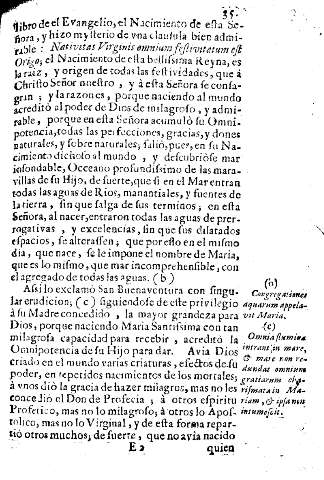 35.
libro de el Evangelio, el Nacimiento de esta Se-
ñora, y hizo mysterio de vna clausula bien admi-
rable: Nativitas Virginis omnium festivitatum est
Origo; el Nacimiento de esta bellissima Reyna, es
la raiz, y origen de todas las festividades, que à
Christo Señor nuestro, y à esta Señora se consa-
gran; y la razon es, porque naciendo al mundo
acreditò al poder de Dios de milagroso, y admi-
rable, porque en esta Señora acumulò su Omni-
potencia, todas las perfecciones, gracias, y dones
naturales, y sobre naturales, saliò, pues, en su Na-
cimiento dichoso al mundo, y descubriòse mar
insondable, Occeano profundissimo de las mara-
villas de su Hijo, de suerte, que si en el Mar entran
todas las aguas de Rios, manantiales, y fuentes de
la tierra, sin que salga de sus terminos; en esta
Señora, al nacer, entraron todas las aguas de prer-
rogativas, y excelencias, sin que sus dilatados
espacios, se alterassen; que por esto en el mismo
dia, que nace, se le impone el nombre de Maria,
que es lo mismo, que mar incomprehensible, con
el agregado de todas las aguas. (b)
Assi lo exclamò San Buenaventura con singu-
lar erudicion, (c) siguiendose de este privilegio
à su Madre concedido, la mayor grandeza para
Dios, porque naciendo Maria Santissima con tan
milagrosa capacidad para recebir, acreditò la
Omnipotencia de su Hijo para dar. Avia Dios
criado en el mundo varias criaturas, efectos de su
poder, en repetidos nacimientos de los mortales;
à vnos diò la gracia de hazer milagros, mas no les
concediò el Don de Profecia; à otros espiritu
Profetico, mas no lo milagroso; à otros lo Apos-
tolico, mas no lo Virginal, y de esta forma repar-
tiò otros muchos; de suerte, que no avia nacido
E 2 quien
(b)
Congregationes
aquarum appela-
vit Maria.
(c)
Omnia flumina
intrant in mare,
& mare non re-
dundat omnium
gratiarum cha-
rismata in Ma-
riam, & ipsa non
intumescit.